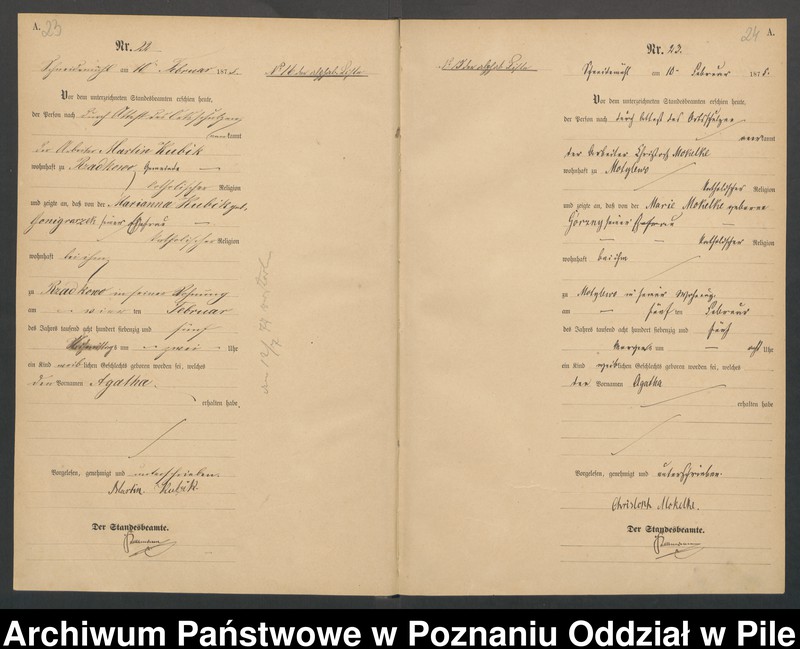 A.
23
Nr. 22
Schneidemühl am 10 Februar 187
Vor dem unterzeichneten Standesbeamten erschien heute,
der Persönlichkeit nach durch Attest des Ortsschulzen
kannt
der Arbeiter Martin Kubik
wohnhaft zu Rzadkowo Gemeinde
katholischer Religion
und zeigte an, daß von der Marianna Kubik geb.
seiner Ehefrau
katholischer Religion
wohnhaft bei ihm
zu Rzadkowo in seiner Wohnung
am vier ten Februar
des Jahres tausend acht hundert siebenzig und fünf
mittags um zwei Uhr
ein Kind weiblichen Geschlechts geboren worden sei, welches
den Vornamen Agatha
erhalten habe.
Vorgelesen, genehmigt und unterschrieben
Martin Kubik
Der Standesbeamte.
24
A.
Nr. 23.
Schneidemühl am 10 Februar 187
Vor dem unterzeichneten Standesbeamten erschien heute,
der Person nach durch Attest des Ortsschulzen
kannt
der Arbeiter Christoph Mokelke
wohnhaft zu Motylewo
katholischer Religion
und zeigte an, daß von der Marie Mokelke geborene
seiner Ehefrau
katholischer Religion
wohnhaft bei ihm
zu Motylewo in seiner Wohnung
am fünf ten Februar
des Jahres tausend acht hundert siebenzig und fünf
Morgens um acht Uhr
ein Kind weiblichen Geschlechts geboren worden sei, welches
den Vornamen Agatha
erhalten habe
Vorgelesen, genehmigt und unterschrieben
Christoph Mokelke.
Der Standesbeamte.
Archiwum Państwowe w Poznaniu Oddział w Pile